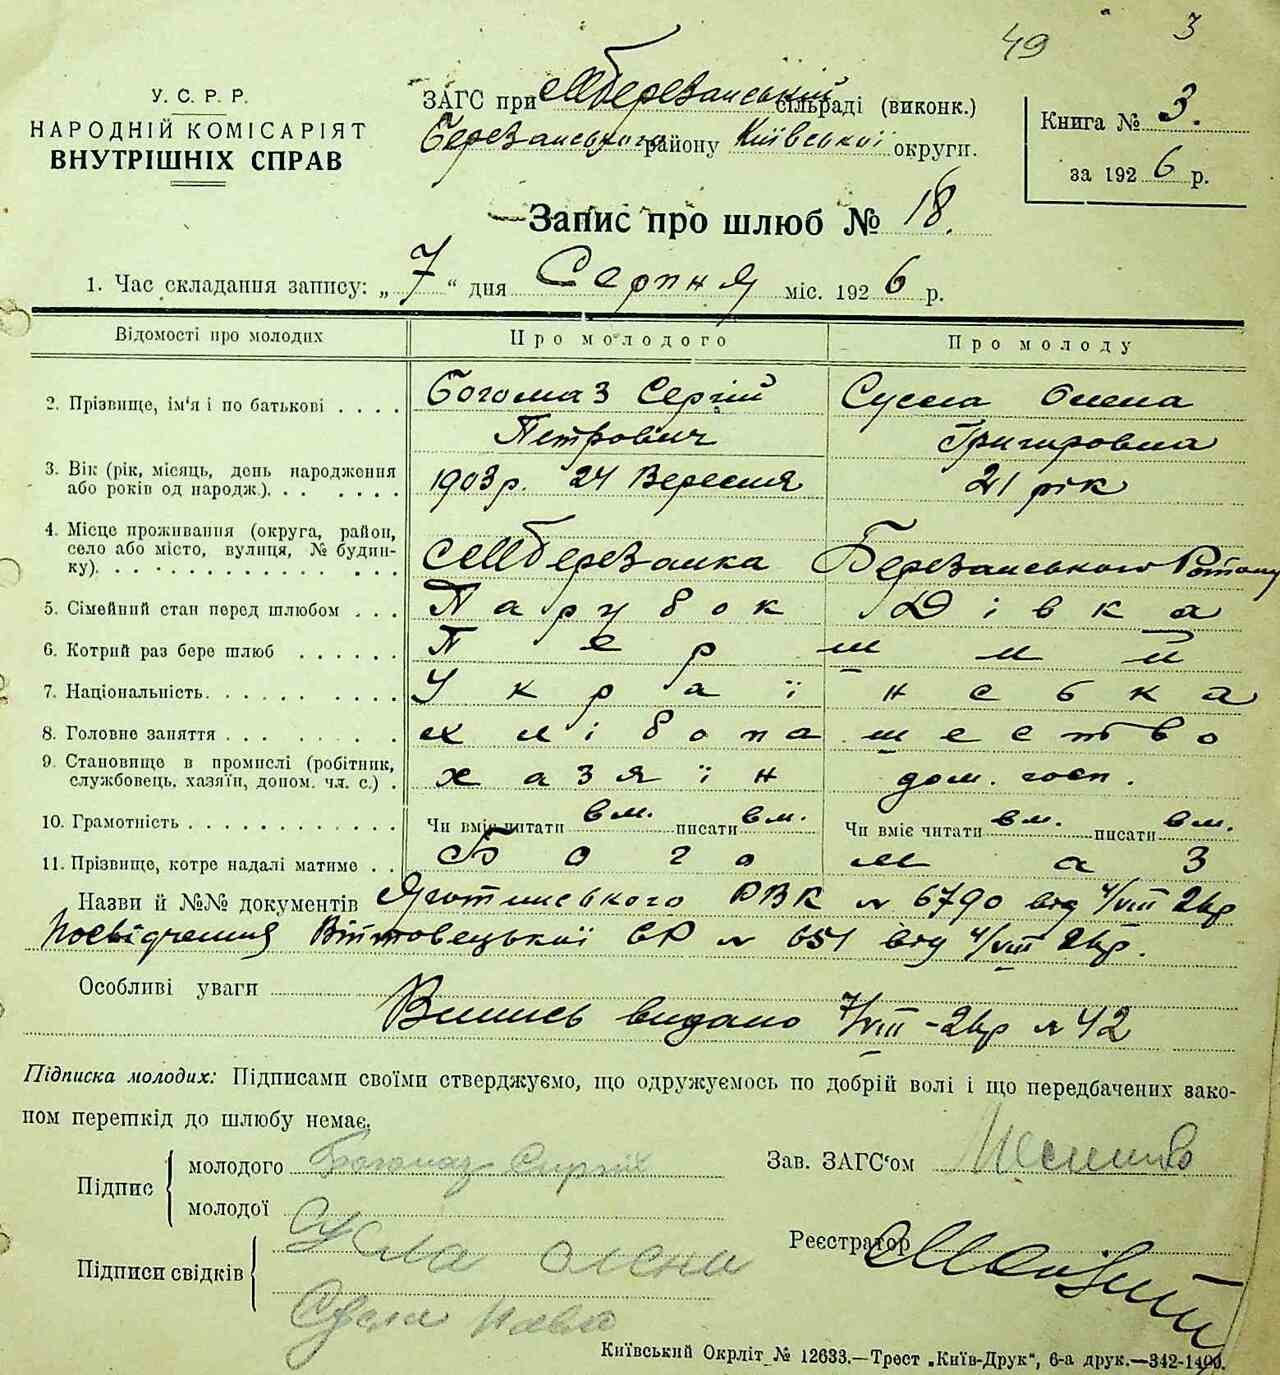 49 3
У. С. Р. Р.
НАРОДНІЙ КОМІСАРІЯТ
ВНУТРІШНІХ СПРАВ
ЗАГС при смт Березанський сільраді (виконк.)
Березанського району Київської округи.
Книга № 3.
за 1926 р.
Запис про шлюб № 18.
1. Час складання запису: „7“ дня Серпня міс. 1926 р.
Відомості про молодих Про молодого Про молоду
2. Прізвище, ім'я і по батькові . . . . Богомаз Сергій Сусла Олена
Петрович Григоровна
3. Вік (рік, місяць, день народження
або років од народж.). . . . . . . 1903 р. 24 Вересня 21 рік
4. Місце проживання (округа, район,
село або місто, вулиця, № будин-
ку). . . . . . . . . . . . . . . . смт Березанка Березанського Району
5. Сімейний стан перед шлюбом . . . Парубок Дівка
6. Котрий раз бере шлюб . . . . . . Перший
7. Національність. . . . . . . . . . Українська
8. Головне заняття . . . . . . . . . хлібопашество
9. Становище в промислі (робітник,
службовець, хазяїн, допом. чл. с.) . хазяїн дом. госп.
10. Грамотність . . . . . . . . . . . Чи вміє читати вм. писати вм. Чи вміє читати вм. писати вм.
11. Прізвище, котре надалі матиме . . Богомаз
Назви й №№ документів Яготинського РВК № 6790 від 4/VIII 26р
Посвідчення Війтовецької СР № 651 від 4/VIII 26р.
Особливі уваги
Випись видано 7/VIII-26р № 42
Підписка молодих: Підписами своїми стверджуємо, що одружуємось по добрій волі і що передбачених зако-
ном перешкід до шлюбу немає.
Підпис молодого Богомаз Сергій
молодої
Сусла Олена
Підписи свідків
Сусла
Зав. ЗАГС'ом
Реєстратор
Київський Окрліт № 12633.—Трест „Київ-Друк“, 6-а друк.—342-1400.